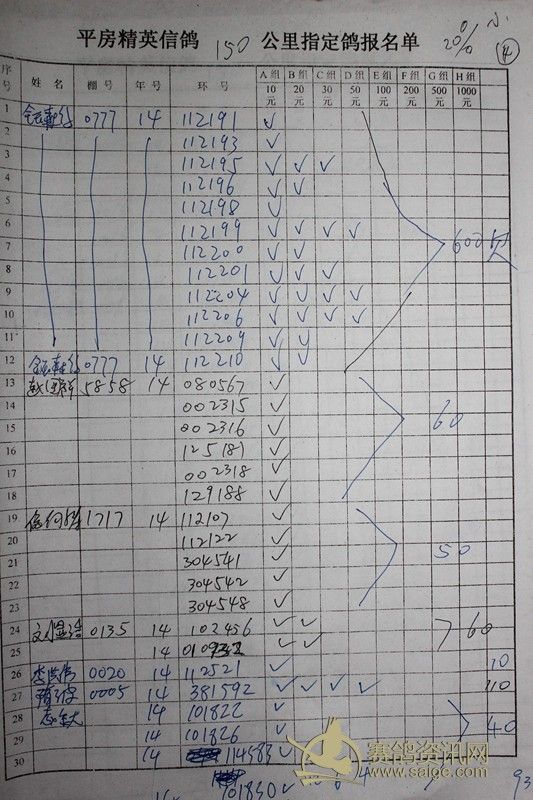 平房精英信鸽 150 公里指定鸽报名单 20% ④
序号 姓名 棚号 年号 环号 A组10元 B组20元 C组30元 D组50元 E组100元 F组200元 G组500元 H组1000元
1 0777 14 112191 ✓
2 112193 ✓
3 112195 ✓ ✓ ✓
4 112196 ✓ ✓
5 112198 ✓
6 112199 ✓ ✓ ✓ ✓
7 112200 ✓ ✓ 600欠
8 112201 ✓ ✓ ✓
9 112204 ✓ ✓ ✓ ✓
10 112206 ✓ ✓ ✓ ✓
11 112209 ✓ ✓
12 0777 14 112210 ✓ ✓
13 5858 14 080567 ✓
14 002315 ✓
15 002316 ✓ 60
16 125187 ✓
17 002318 ✓
18 129188 ✓
19 1717 14 112107 ✓
20 112122 ✓
21 304541 ✓ 50
22 304542 ✓
23 304548 ✓
24 0135 14 102456 ✓ ✓ 60
25 14 ✓ ✓
26 0020 14 112521 ✓ 10
27 0005 14 381592 ✓ ✓ ✓ ✓ 110
28 14 101822 ✓ 40
29 14 101826 ✓
30 14 114583 ✓
101830 ✓
赛鸽资讯网
www.saige.com